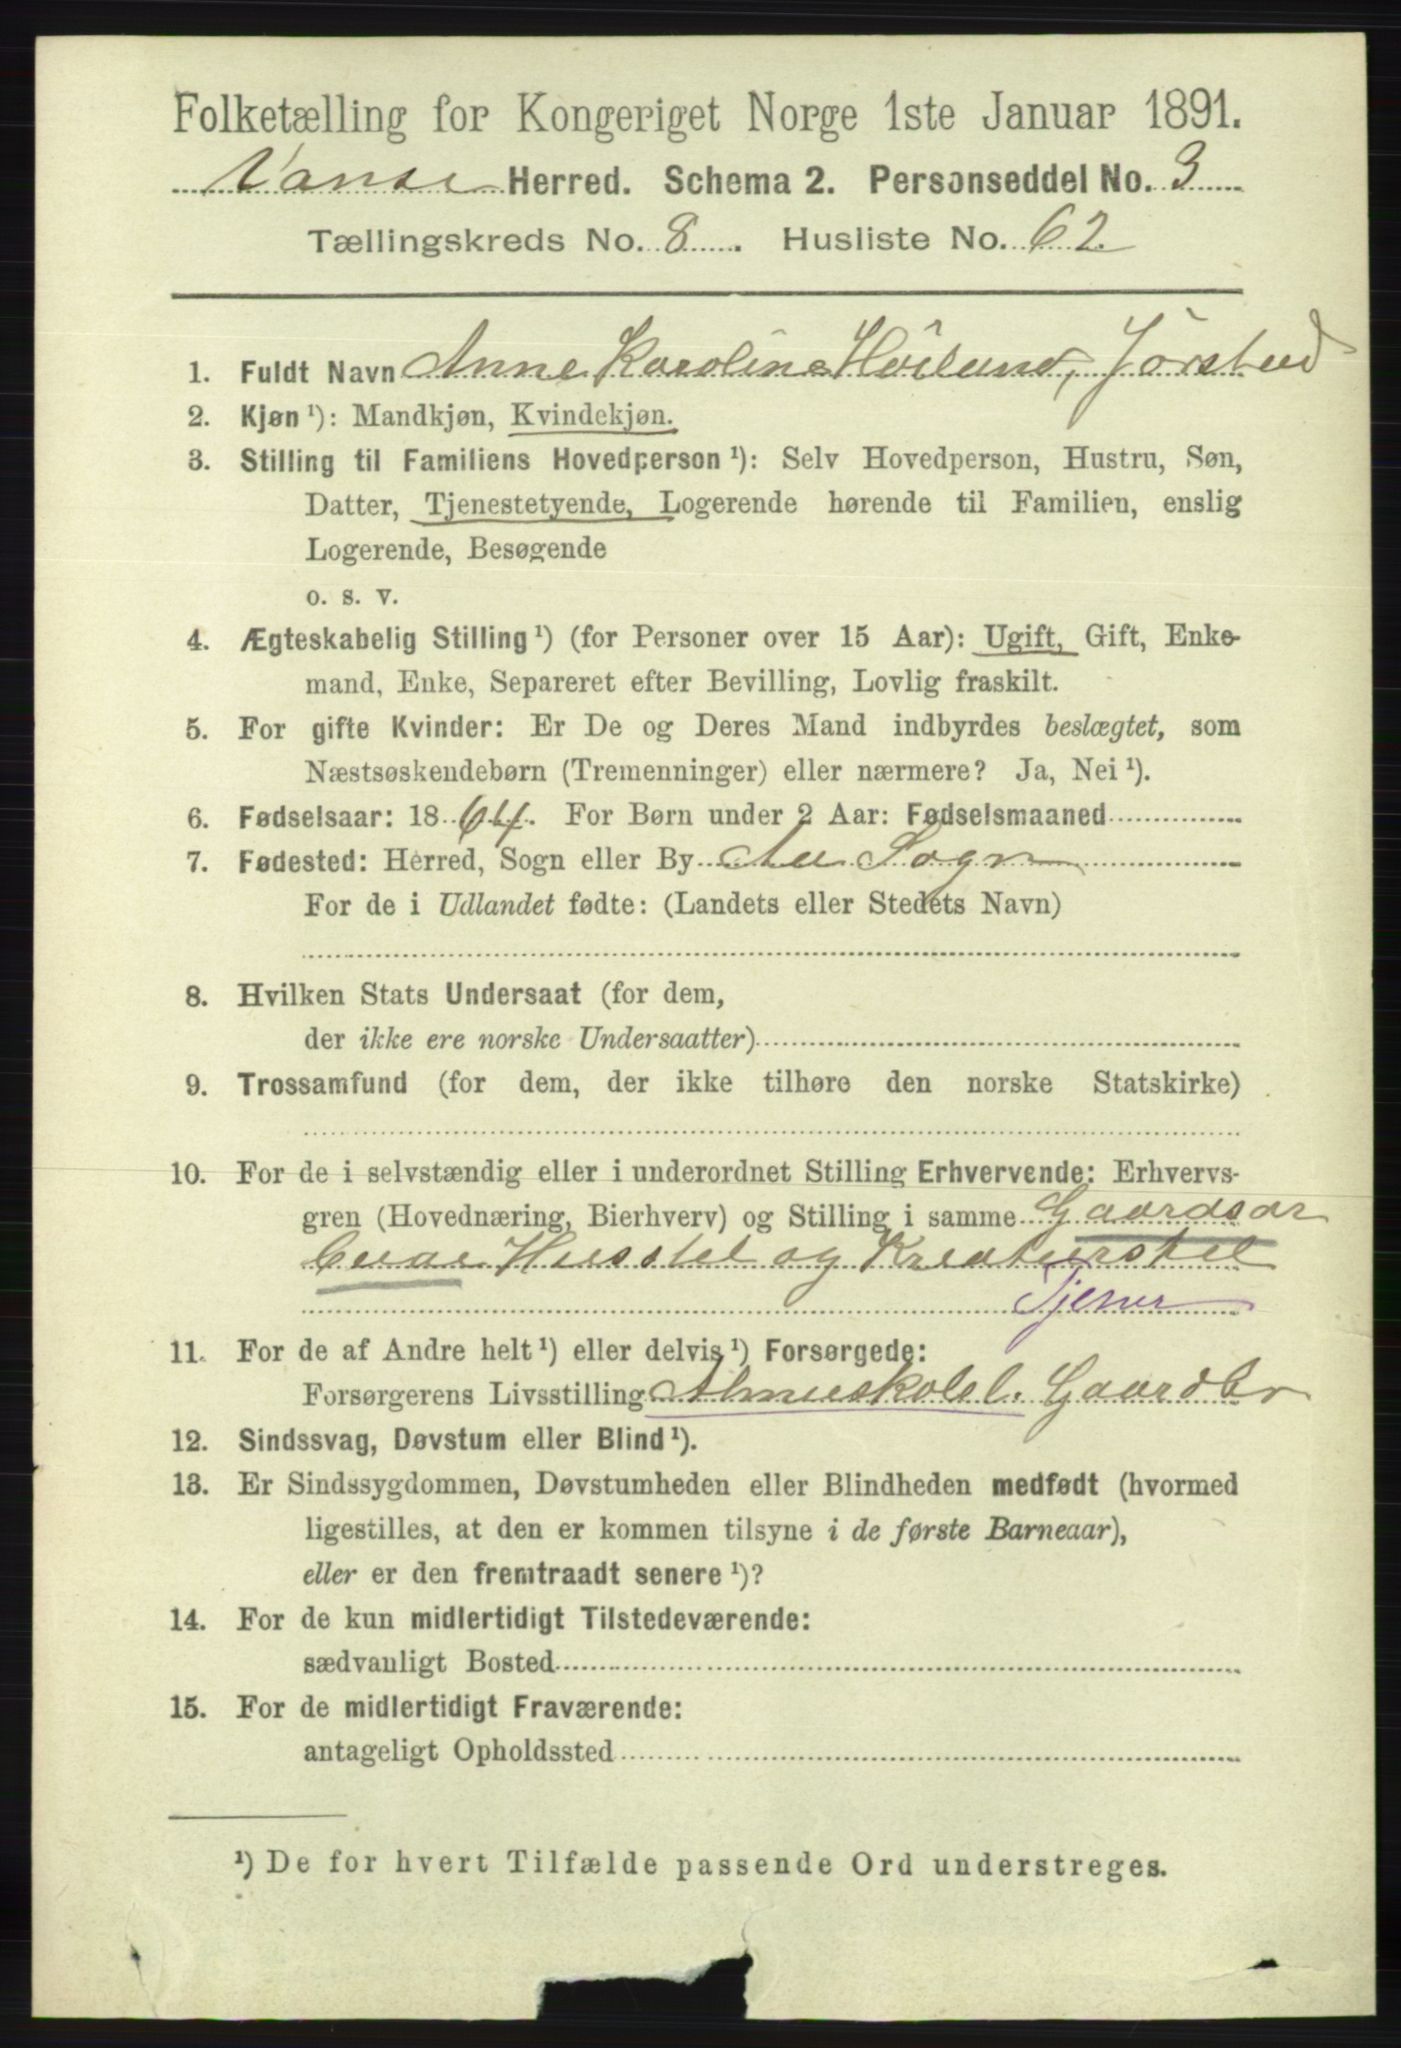 Folketælling for Kongeriget Norge 1ste Januar 1891.
Vanse Herred. Schema 2. Personseddel No. 3
Tællingskreds No. 8. Husliste No. 62.
1. Fuldt Navn Anne Karoline Höiland, Jörstad
2. Kjøn ¹): Mandkjøn, Kvindekjøn.
3. Stilling til Familiens Hovedperson ¹): Selv Hovedperson, Hustru, Søn,
Datter, Tjenestetyende, Logerende hørende til Familien, enslig
Logerende, Besøgende
o. s. v.
4. Ægteskabelig Stilling ¹) (for Personer over 15 Aar): Ugift, Gift, Enke-
mand, Enke, Separeret efter Bevilling, Lovlig fraskilt.
5. For gifte Kvinder: Er De og Deres Mand indbyrdes beslægtet, som
Næstsøskendebørn (Tremenninger) eller nærmere? Ja, Nei ¹).
6. Fødselsaar: 1864. For Børn under 2 Aar: Fødselsmaaned
7. Fødested: Herred, Sogn eller By Aa Sogn
For de i Udlandet fødte: (Landets eller Stedets Navn)
8. Hvilken Stats Undersaat (for dem,
der ikke ere norske Undersaatter)
9. Trossamfund (for dem, der ikke tilhøre den norske Statskirke)
10. For de i selvstændig eller i underordnet Stilling Erhvervende: Erhvervs-
gren (Hovednæring, Bierhverv) og Stilling i samme Gaardsar
beide Husstel og Kreaturstel
Tjener
11. For de af Andre helt ¹) eller delvis ¹) Forsørgede:
Forsørgerens Livsstilling Almueskolel. Gaardbr
12. Sindssvag, Døvstum eller Blind ¹).
13. Er Sindssygdommen, Døvstumheden eller Blindheden medfødt (hvormed
ligestilles, at den er kommen tilsyne i de første Barneaar),
eller er den fremtraadt senere ¹)?
14. For de kun midlertidigt Tilstedeværende:
sædvanligt Bosted
15. For de midlertidigt Fraværende:
antageligt Opholdssted
¹) De for hvert Tilfælde passende Ord understreges.